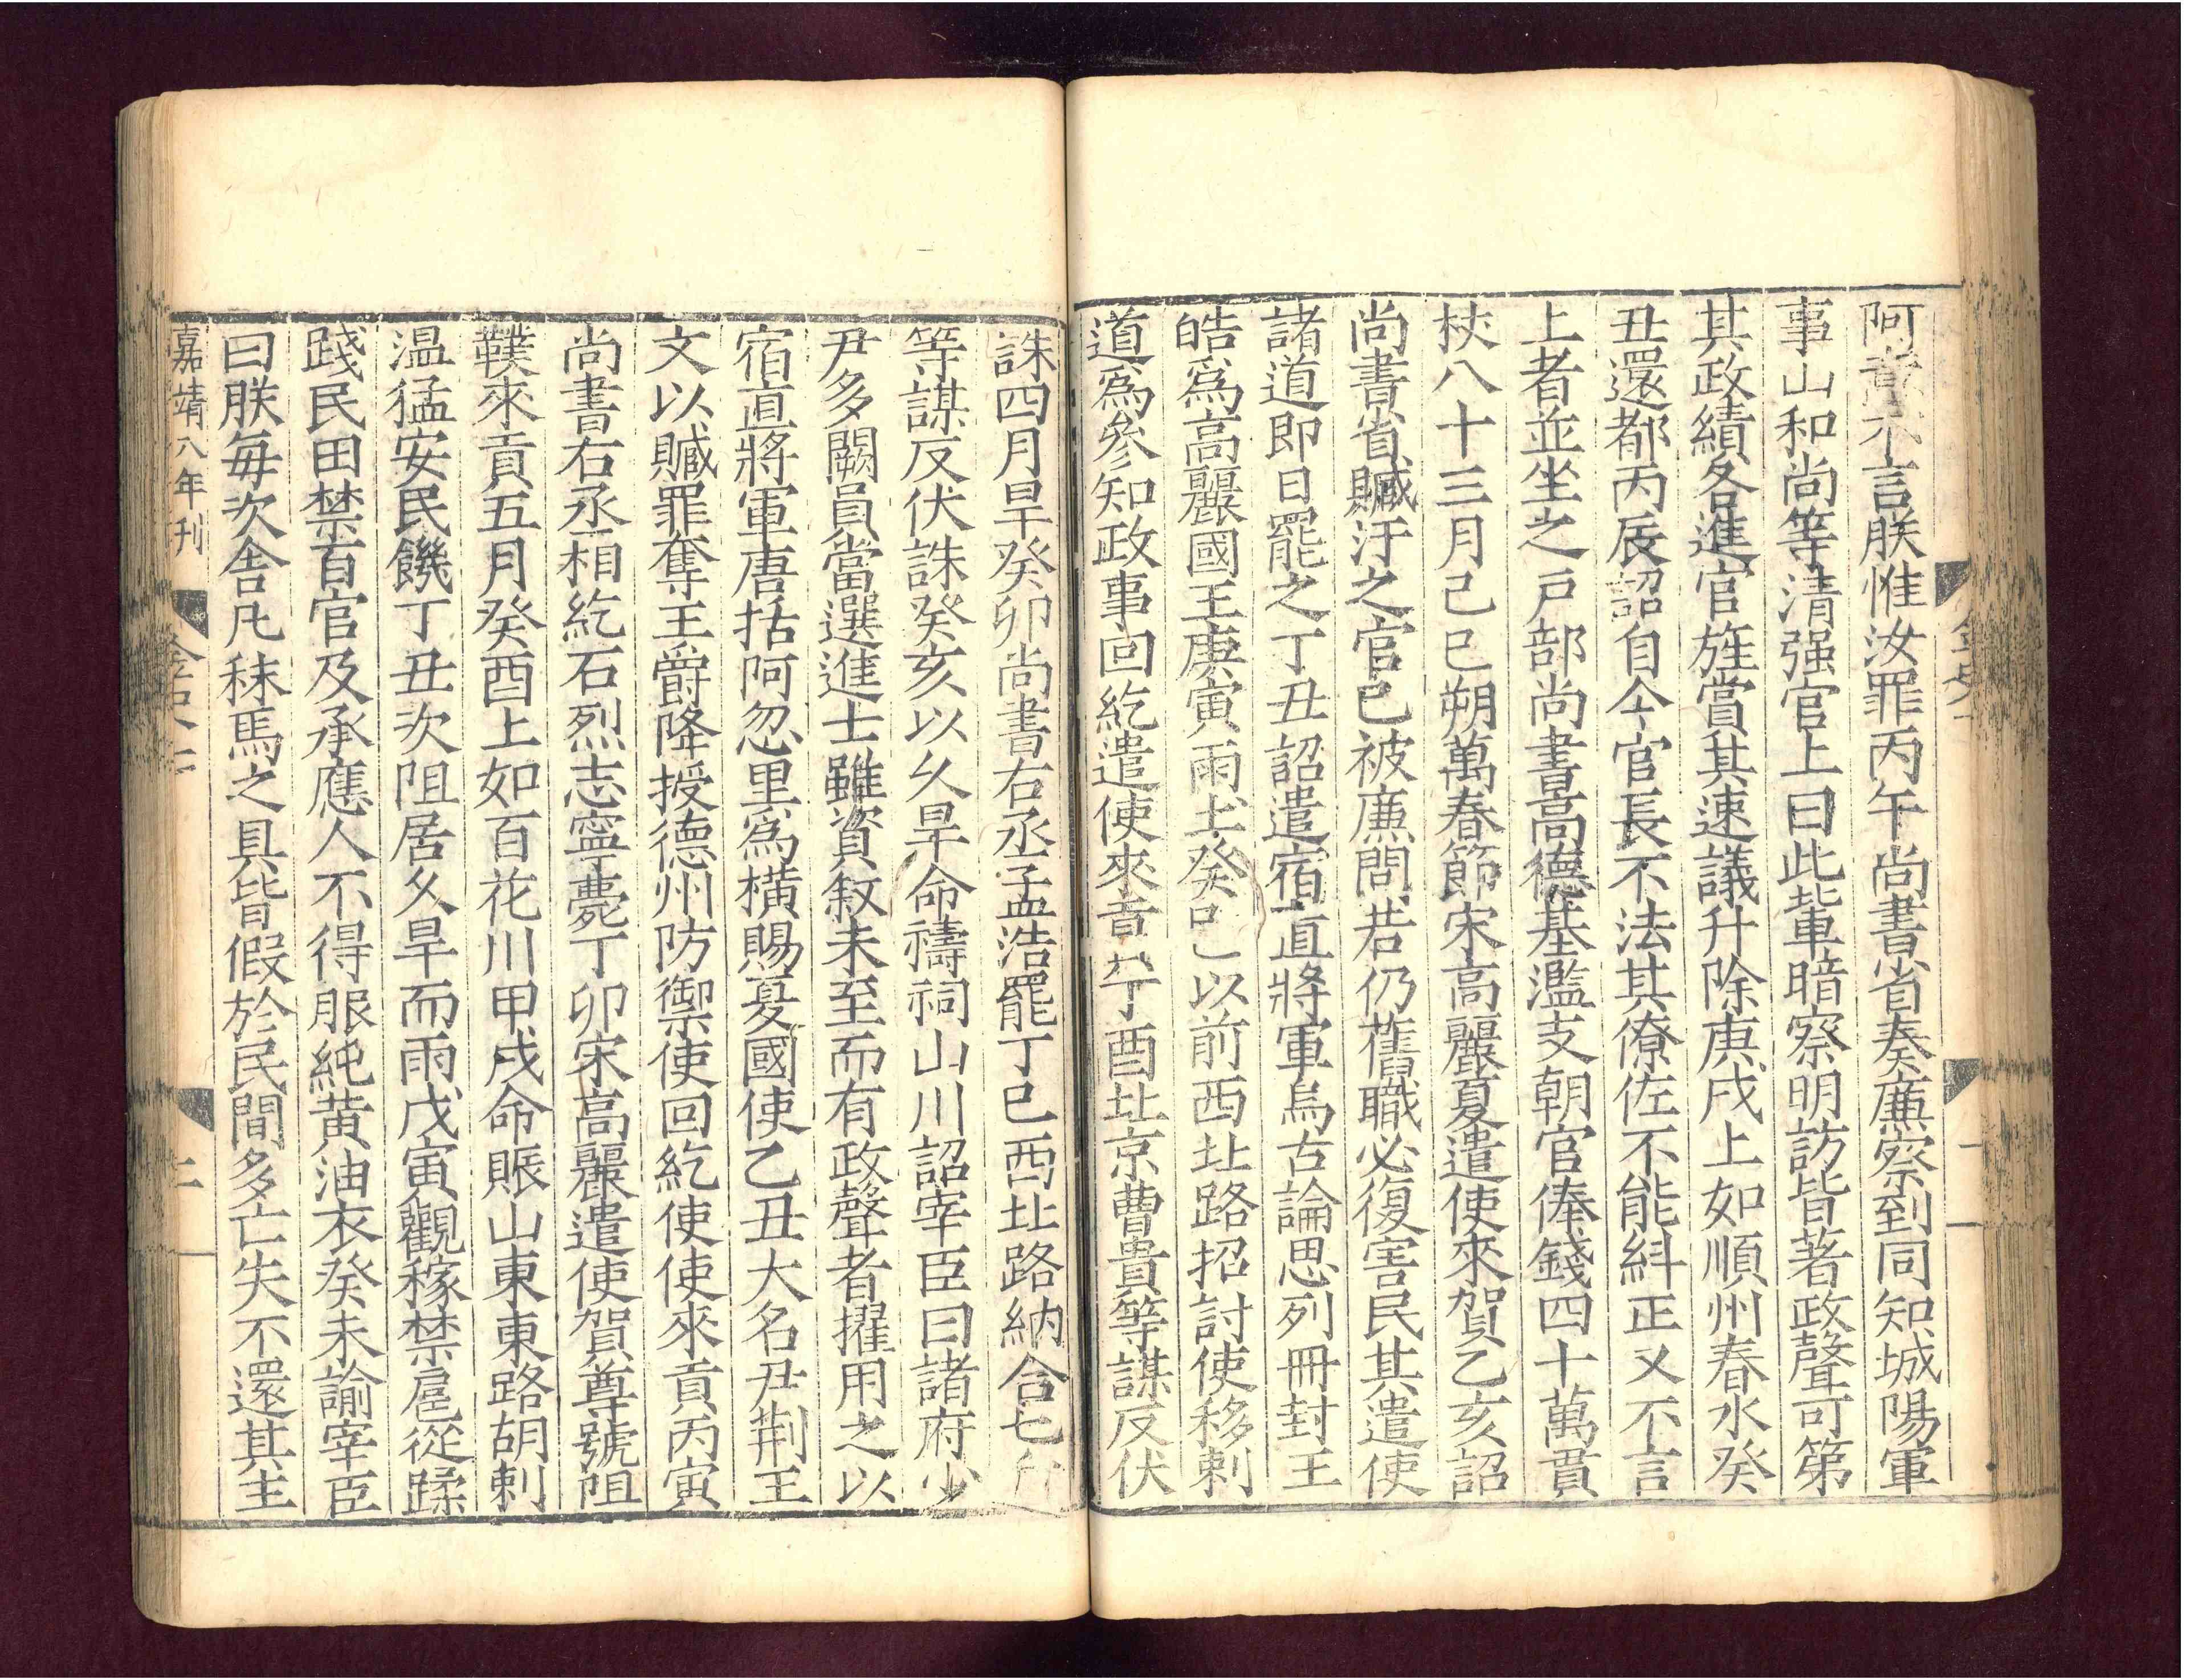 阿責不言朕惟汝罪丙午尚書省奏廉察到同知城陽軍
事山和尚等清强官上曰此軰暗察明訪皆著政聲可第
其政績各進官旌賞其速議升除庚戌上如順州春水癸
丑還都丙辰詔自今官長不法其僚佐不能糾正又不言
上者並坐之戸部尚書高德基濫支朝官俸錢四十萬貫
杖八十三月己巳朔萬春節宋高麗夏遣使來賀乙亥詔
尚書省贓汙之官已被廉問若仍舊職必復害民其遣使
諸道即日罷之丁丑詔遣宿直將軍烏古論思列冊封王
皓爲高麗國王庚寅雨土癸巳以前西北路招討使移剌
道爲參知政事回紇遣使來貢丁酉北京曹貴等謀反伏
誅四月旱癸卯尚書右丞孟浩罷丁巳西北路納合七斤
等謀反伏誅癸亥以久旱命禱祠山川詔宰臣曰諸府少
尹多闕員當選進士雖資叙未至而有政聲者擢用之以
宿直將軍唐括阿忽里爲橫賜夏國使乙丑大名尹荆王
文以贓罪奪王爵降授德州防禦使回紇使使來貢丙寅
尚書右丞相紇石烈志寧薨丁卯宋高麗遣使賀尊號阻
䪁來貢五月癸酉上如百花川甲戌命賑山東東路胡剌
温猛安民饑丁丑次阻居久旱而雨戊寅觀稼禁扈從蹂
踐民田禁百官及承應人不得服純黄油衣癸未諭宰臣
曰朕每次舍凡秣馬之具皆假於民間多亡失不還其主
嘉靖八年刊
金史七
二